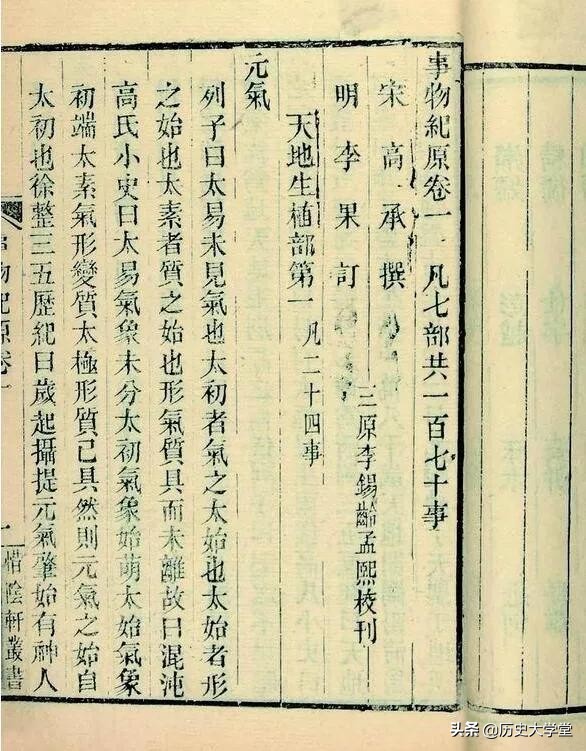 事物紀原卷一 凡七部共一百七十事
宋 高 承 撰
明 李 果 訂
三原李錫齡孟熙校刊
天地生植部第一 凡二十四事
元氣
列子曰太易未見氣也太初者氣之太始也太始者形
之始也太素者質之始也形氣質具而未離故曰混沌
高氏小史曰太易氣象未分太初氣象始萌太始氣象
初端太素氣形變質太極形質已具然則元氣之始自
太初也徐整三五歷紀曰歲起攝提元氣肇始有神人
事物紀原卷一
一
惜陰軒叢書
头条 @历史大学堂